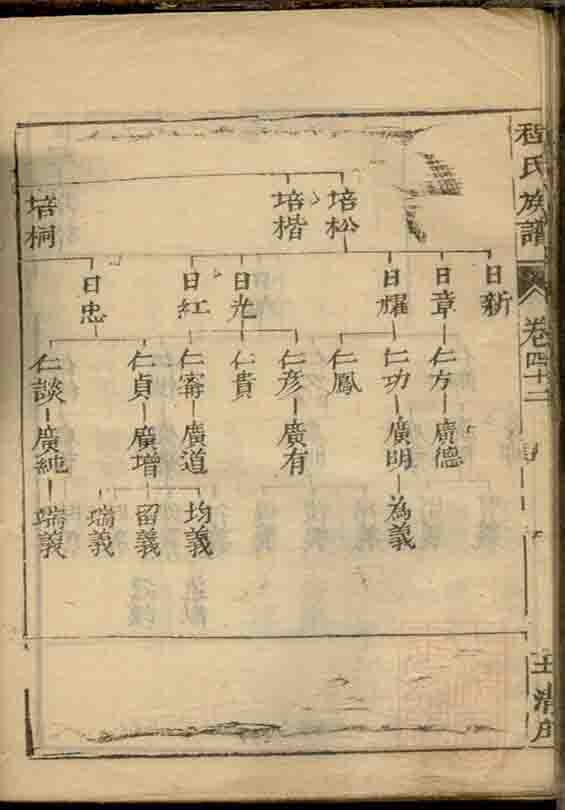 程氏族譜
卷四十二
培松
培楷
培桐
日新
日章
日耀
日光
日紅
日忠
仁方 廣德
仁功 廣明 為義
仁鳳
仁彥 廣有
仁貴
仁寗 廣道 均義
仁貞 廣增 留義
瑞義
仁談 廣純 端義